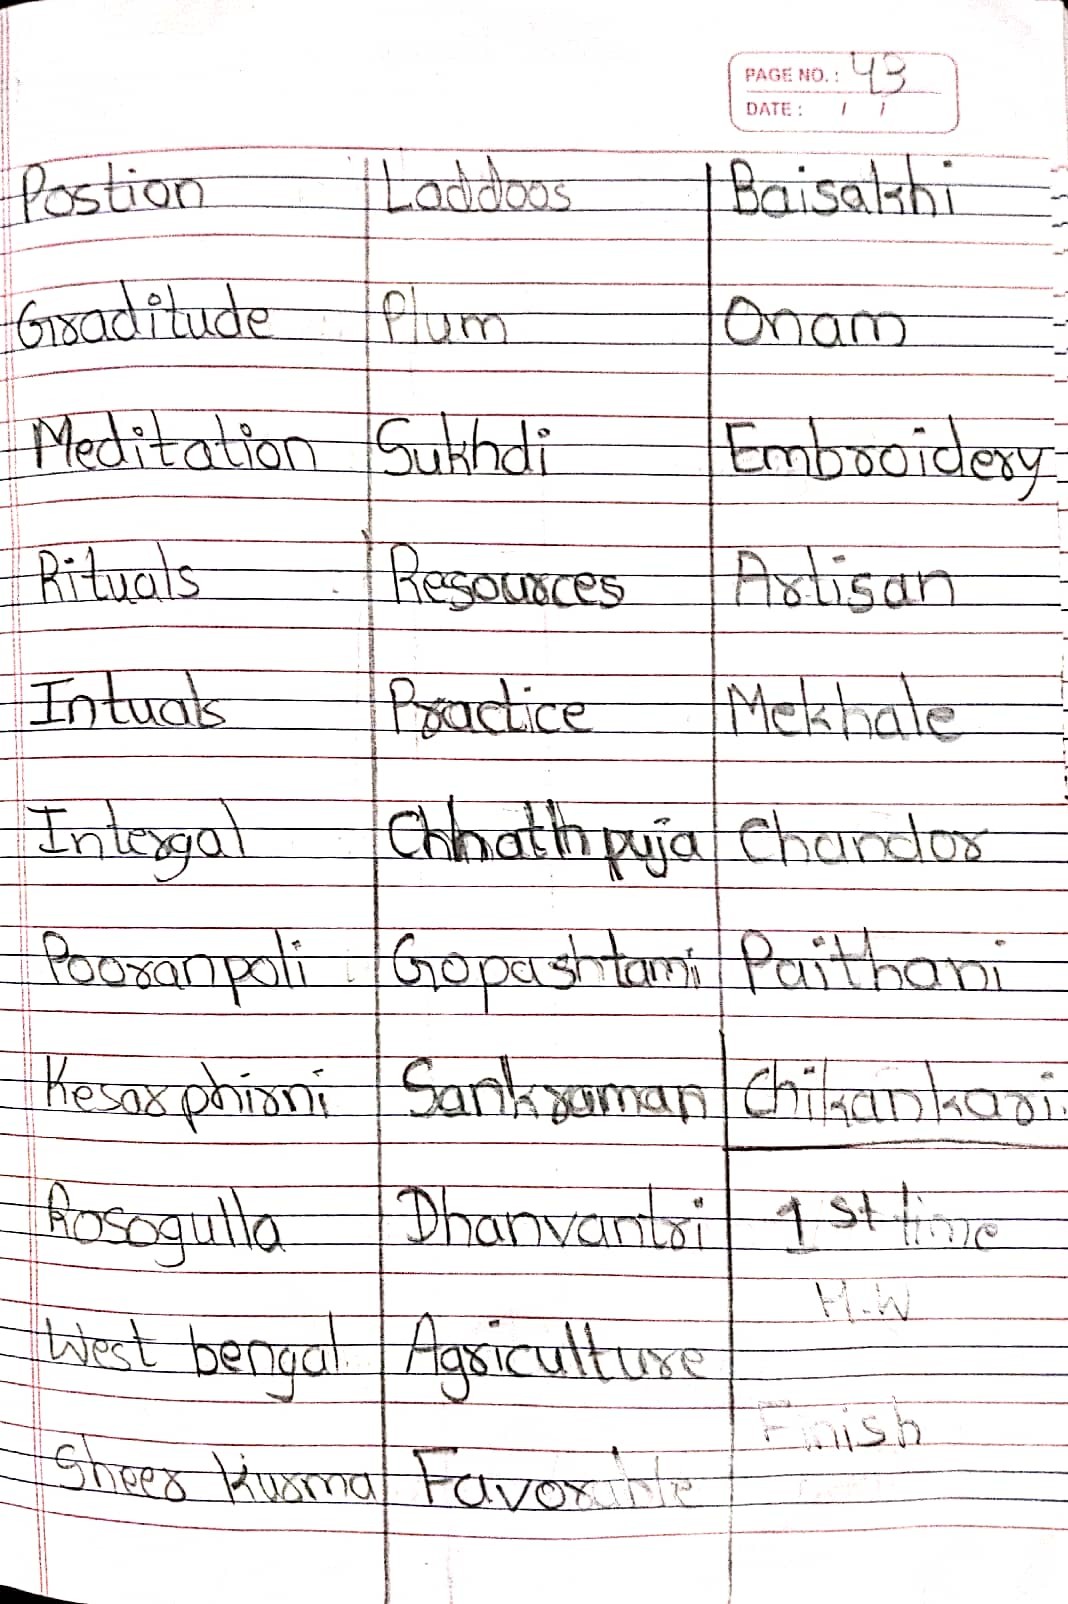 PAGE NO.: 43
DATE: / /
Postion Laddoos Baisakhi
Graditude Plum Onam
Meditation Sukhdi Embroidery
Rituals Resources Artisan
Intuals Practice Mekhale
Intergal Chhathpuja Chandor
Pooranpoli Gopashtami Paithani
Kesarphirni Sankraman Chikankari.
Rosogulla Dhanvantri 1st time
H.W
West bengal. Agriculture
Finish
Sheer Kurma Favorable